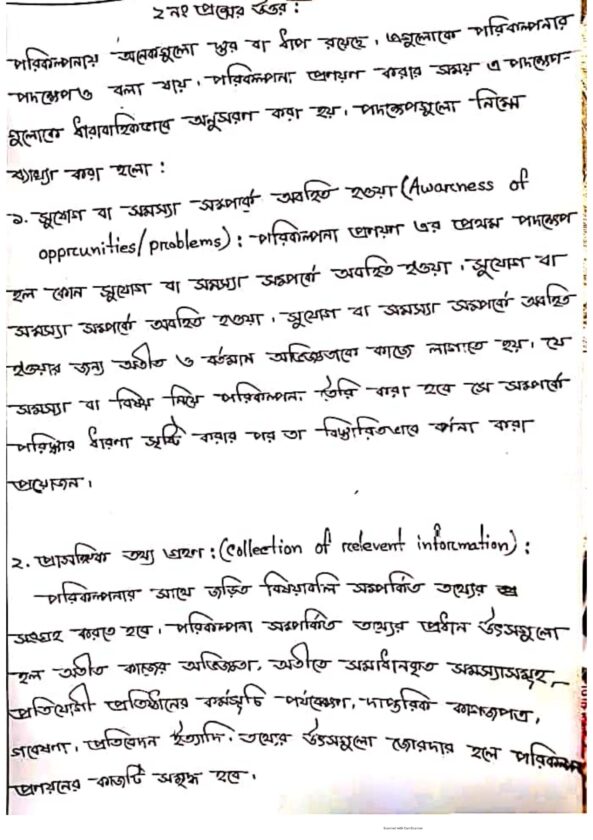 ২ নং প্রশ্নের উত্তর :
পরিকল্পনায় অনেকগুলো স্তর বা ধাপ রয়েছে। এগুলোকে পরিকল্পনার
পদক্ষেপও বলা যায়। পরিকল্পনা প্রণয়ণ করার সময় এ পদক্ষেপ-
গুলোকে ধারাবাহিকভাবে অনুসরণ করা হয়। পদক্ষেপগুলো নিম্নে
ব্যাখ্যা করা হলো :
১. সুযোগ বা সমস্যা সম্পর্কে অবহিত হওয়া (Awarness of
opprcunities/problems) : পরিকল্পনা প্রণয়ণ এর প্রথম পদক্ষেপ
হল কোন সুযোগ বা সমস্যা সম্পর্কে অবহিত হওয়া। সুযোগ বা
সমস্যা সম্পর্কে অবহিত হওয়া। সুযোগ বা সমস্যা সম্পর্কে অবহিত
হওয়ার জন্য অতীত ও বর্তমান অভিজ্ঞতাকে কাজে লাগাতে হয়। যে
সমস্যা বা বিষয় নিয়ে পরিকল্পনা তৈরি করা হবে সে সম্পর্কে
পরিষ্কার ধারণা সৃষ্টি করার পর তা বিস্তারিতভাবে বর্ণনা করা
প্রয়োজন।
২. প্রাসঙ্গিক তথ্য গ্রহণ : (Collection of rcelevent information) :
পরিকল্পনার সাথে জড়িত বিষয়াবলি সম্পর্কিত তথ্যের
সংগ্রহ করতে হবে। পরিকল্পনা সম্পর্কিত তথ্যের প্রধান উৎসগুলো
হল অতীত কাজের অভিজ্ঞতা, অতীতে সমাধানকৃত সমস্যাসমূহ,
প্রতিযোগী প্রতিষ্ঠানের কর্মসূচি পর্যবেক্ষণ, দাপ্তরিক কাগজপত্র,
গবেষণা, প্রতিবেদন ইত্যাদি। তথ্যের উৎসগুলো জোরদার হলে পরিকল্পনা
প্রণয়নের কাজটি সমৃদ্ধ হবে।